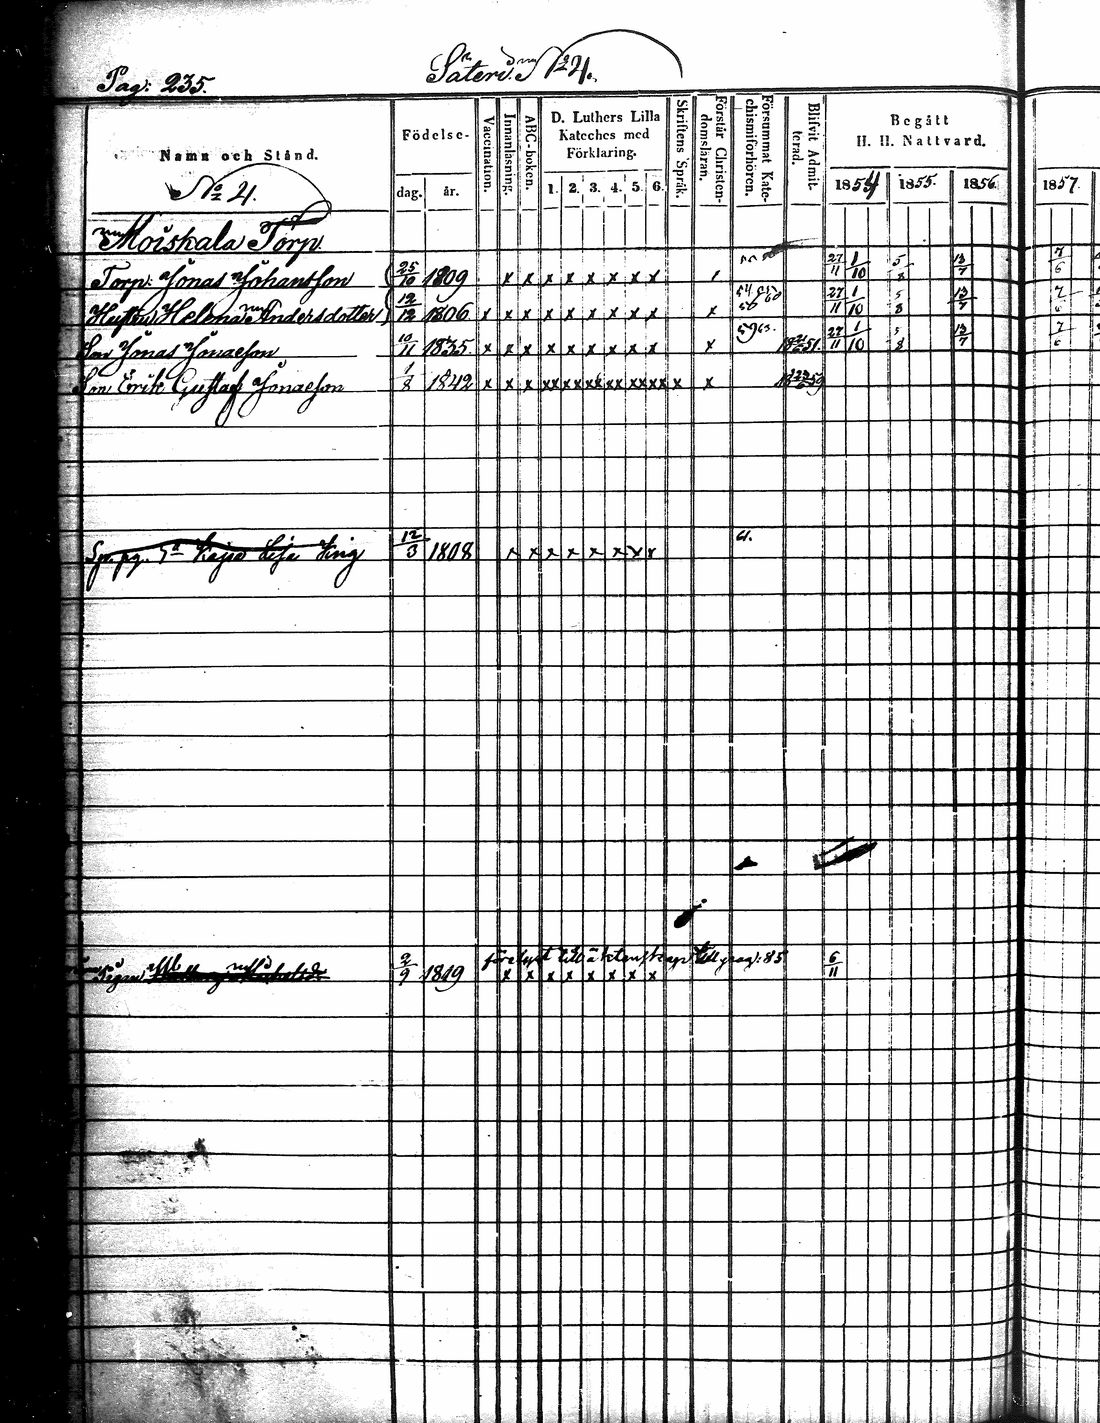 Pag: 235.
Säteri N:o 21.
Namn och Stånd.
N:o 21.
Födelse-
dag. år.
Vaccination.
Innanläsning.
ABC-boken.
D. Luthers Lilla
Kateches med
Förklaring.
1. 2. 3. 4. 5. 6.
Skriftens Språk.
Förstår Christen-
domsläran.
Försummat Kate-
chismiförhören.
Blifvit Admit-
terad.
Begått
H. H. Nattvard.
1854 1855. 1856 1857.
Moiskala Torp
Torp: Jonas Johansson 25/10 1809 x x x x x x x x 27/11 1/10 5/8 13/7 7/6
Hustru Helena Andersdotter 12/12 1806 x x x x x x x x x x 27/11 1/10 5/8 13/7
Son Jonas Jonasson 10/11 1835 x x x x x x x x x x 27/11 1/10 5/8 13/7 7/6
Son Erik Gustaf Jonasson 1/8 1842 x x x xx xx xx xx xx xx x x
Kajsa Lisa 12/3 1808 x x x x x x x x
förelyst till äktenskap till pag: 85
Pigan 2/9 1819 x x x x x x x x 6/11